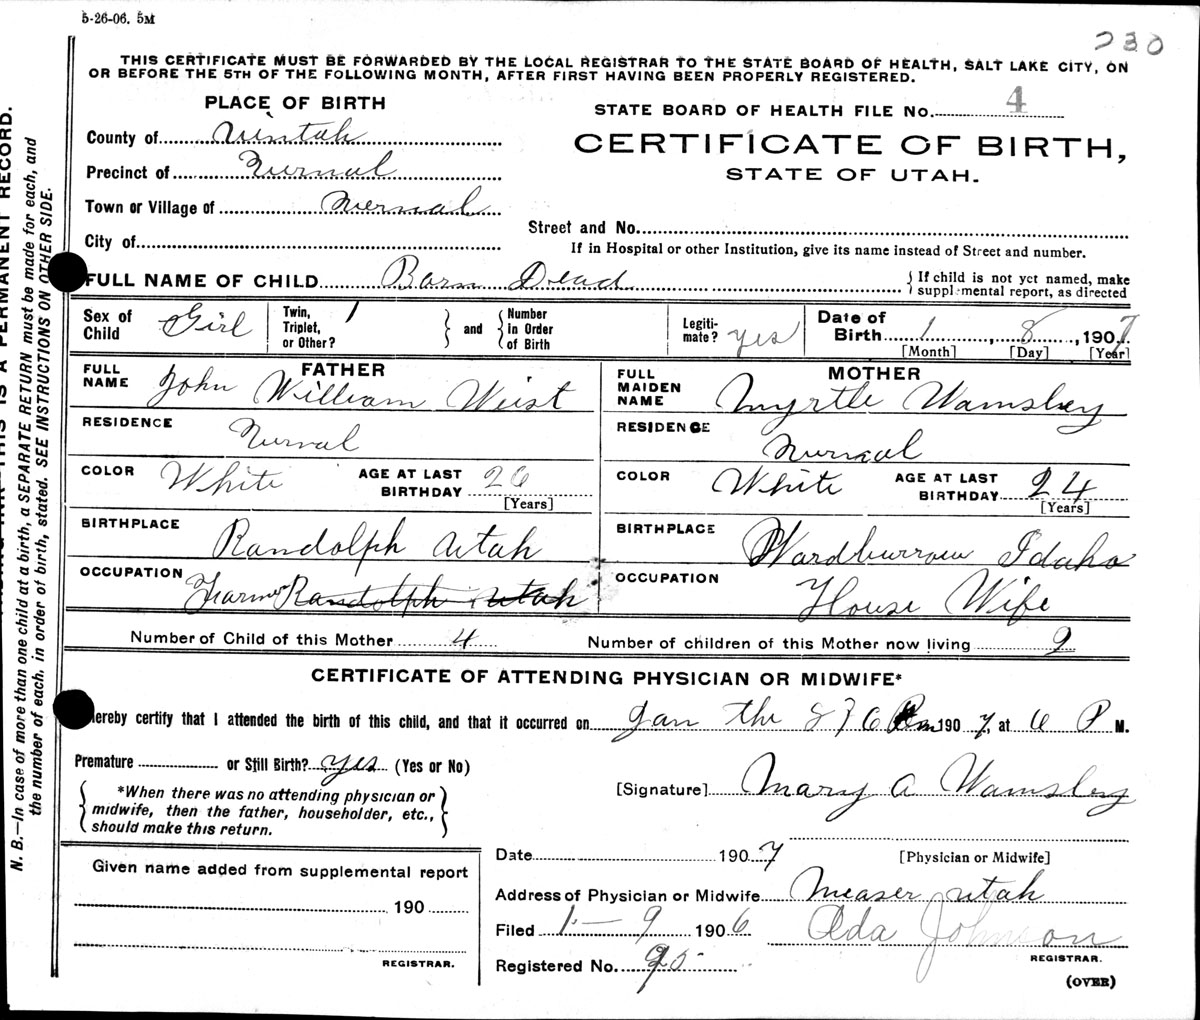 5-26-06. 5M
230
THIS CERTIFICATE MUST BE FORWARDED BY THE LOCAL REGISTRAR TO THE STATE BOARD OF HEALTH, SALT LAKE CITY, ON
OR BEFORE THE 5TH OF THE FOLLOWING MONTH, AFTER FIRST HAVING BEEN PROPERLY REGISTERED.
PLACE OF BIRTH
STATE BOARD OF HEALTH FILE No. 4
County of Uintah
CERTIFICATE OF BIRTH,
STATE OF UTAH.
Precinct of Vurnal
Town or Village of Vernal
Street and No.
City of
If in Hospital or other Institution, give its name instead of Street and number.
FULL NAME OF CHILD Born Dead
{If child is not yet named, make
supplemental report, as directed
Sex of Child Girl
Twin, Triplet, or Other? 1
and
Number in Order of Birth
Legiti-mate? yes
Date of Birth 1, 8, 1907
[Month] [Day] [Year]
FATHER
FULL NAME John William Wist
RESIDENCE Vurnal
COLOR White AGE AT LAST BIRTHDAY 26
[Years]
BIRTHPLACE Randolph Utah
OCCUPATION Farmer Randolph Utah
MOTHER
FULL MAIDEN NAME Myrtle Wamsley
RESIDENCE Vurnal
COLOR White AGE AT LAST BIRTHDAY 24
[Years]
BIRTHPLACE Wardburrow Idaho
OCCUPATION House Wife
Number of Child of this Mother 4 Number of children of this Mother now living 2
CERTIFICATE OF ATTENDING PHYSICIAN OR MIDWIFE*
hereby certify that I attended the birth of this child, and that it occurred on Jan the 8 1907, at 6 P M.
Premature or Still Birth? yes (Yes or No)
*When there was no attending physician or
midwife, then the father, householder, etc.,
should make this return.
[Signature] Mary A Wamsley
[Physician or Midwife]
Given name added from supplemental report
190
REGISTRAR.
Date 1907
Address of Physician or Midwife Measer Utah
Filed 1-9 1906 Ada Johnson
REGISTRAR.
Registered No. 95
(OVER)
THIS IS A PERMANENT RECORD.
N. B.—In case of more than one child at a birth, a SEPARATE RETURN must be made for each, and
the number of each, in order of birth, stated. SEE INSTRUCTIONS ON OTHER SIDE.